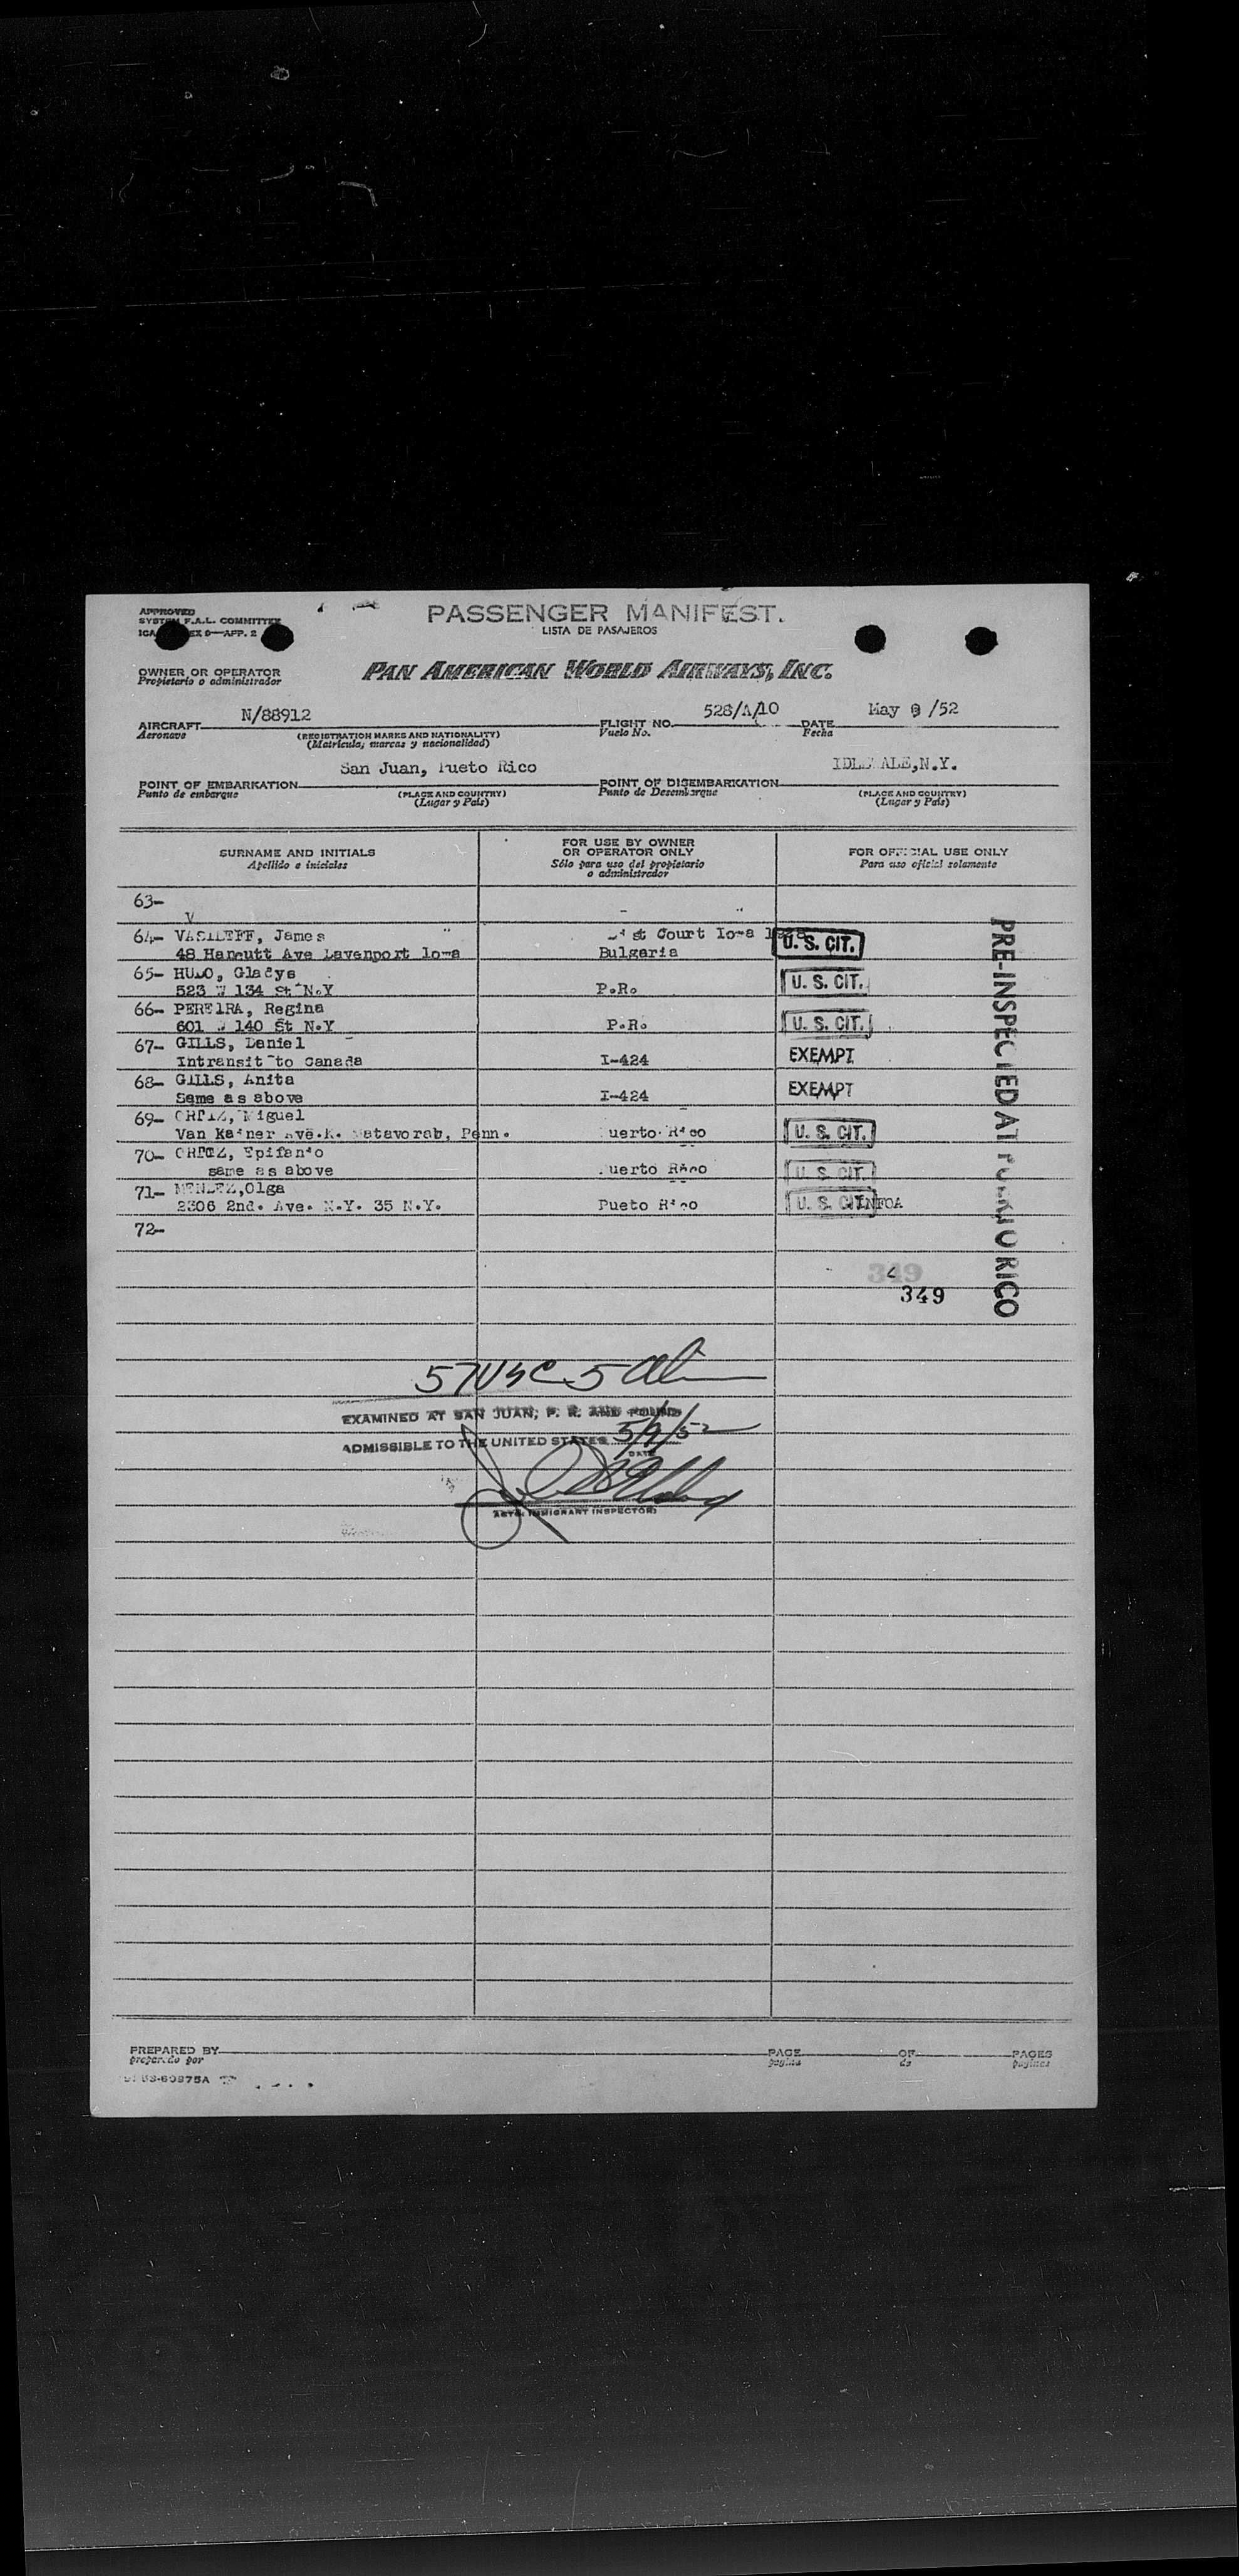 APPROVED
SYSTEM F.A.L. COMMITTEE
APP. 2
PASSENGER MANIFEST.
LISTA DE PASAJEROS
PAN AMERICAN WORLD AIRWAYS, INC.
OWNER OR OPERATOR
Propietario o administrador
AIRCRAFT N/88912 FLIGHT NO. 526/A/10 DATE May 9 /52
Aeronave (REGISTRATION MARKS AND NATIONALITY) Vuelo No. Fecha
(Matrícula, marcas y nacionalidad)
San Juan, Pueto Rico IDLEWALE,N.Y.
POINT OF EMBARKATION POINT OF DISEMBARKATION
Punto de embarque (PLACE AND COUNTRY) Punto de Desembarque (PLACE AND COUNTRY)
(Lugar y País) (Lugar y País)
SURNAME AND INITIALS FOR USE BY OWNER OR OPERATOR ONLY FOR OFFICIAL USE ONLY
Apellido e iniciales Sólo para uso del propietario o administrador Para uso oficial solamente
63-
64- VASILEFF, James st Court Iowa
48 Ave Davenport Iowa Bulgaria U. S. CIT.
65- HUDO, Gladys
523 W 134 St N.Y P.R. U. S. CIT.
66- PEREIRA, Regina
601 140 St N.Y P.R. U. S. CIT.
67- GILLS, Daniel
Intransit to Canada I-424 EXEMPT
68- GILLS, Anita
Same as above I-424 EXEMPT
69- ORTIZ, Miguel
Van Ave. Penn. Puerto Rico U. S. CIT.
70- ORTIZ, Epifanio
same as above Puerto Rico U. S. CIT.
71- MENDEZ,Olga
2306 2nd. Ave. N.Y. 35 N.Y. Pueto Rico U. S. CIT. INFOA
72-
PRE-INSPECTED AT PUERTO RICO
349
349
57USC 5
EXAMINED AT SAN JUAN, P. R. AND FOUND
ADMISSIBLE TO THE UNITED STATES 5/9/52
DATE
IMMIGRANT INSPECTOR
PREPARED BY PAGE OF PAGES
preparado por pagina de paginas